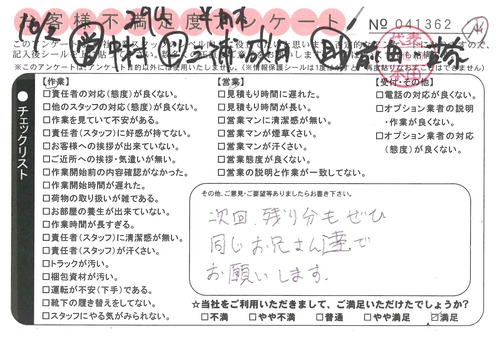 お客様不満足度アンケート
No 041362
【作業】
□責任者の対応(態度)が良くない。
□他のスタッフの対応(態度)が良くない。
□作業を見ていて不安がある。
□責任者(スタッフ)に好感が持てない。
□お客様への挨拶が出来ていない。
□ご近所への挨拶・気遣いが無い。
□作業開始前の内容確認がなかった。
□作業開始時間が遅れた。
□荷物の取り扱いが雑である。
□お部屋の養生が出来ていない。
□作業時間が長すぎる。
□責任者(スタッフ)に清潔感が無い。
□責任者(スタッフ)が汗くさい。
□トラックが汚い。
□梱包資材が汚い。
□運転が不安(下手)である。
□靴下の履き替えをしてない。
□スタッフにやる気がみられない。
【営業】
□見積もり時間に遅れた。
□見積もり時間が長い。
□営業マンに清潔感が無い。
□営業マンが煙草くさい。
□営業マンが汗くさい。
□営業態度が良くない。
□営業の説明と作業が一致してない。
【受付・その他】
□電話の対応が良くない。
□オプション業者の説明
・作業が良くない。
□オプション業者の対応
(態度)が良くない。
チェックリスト
その他、ご意見・ご要望等ありましたらお書き下さい。
次回、残り分もぜひ
同じお兄さん達で
お願いします。
☆当社をご利用いただきまして、ご満足いただけたでしょうか?
□不満 □やや不満 □普通 □やや満足 ☑満足